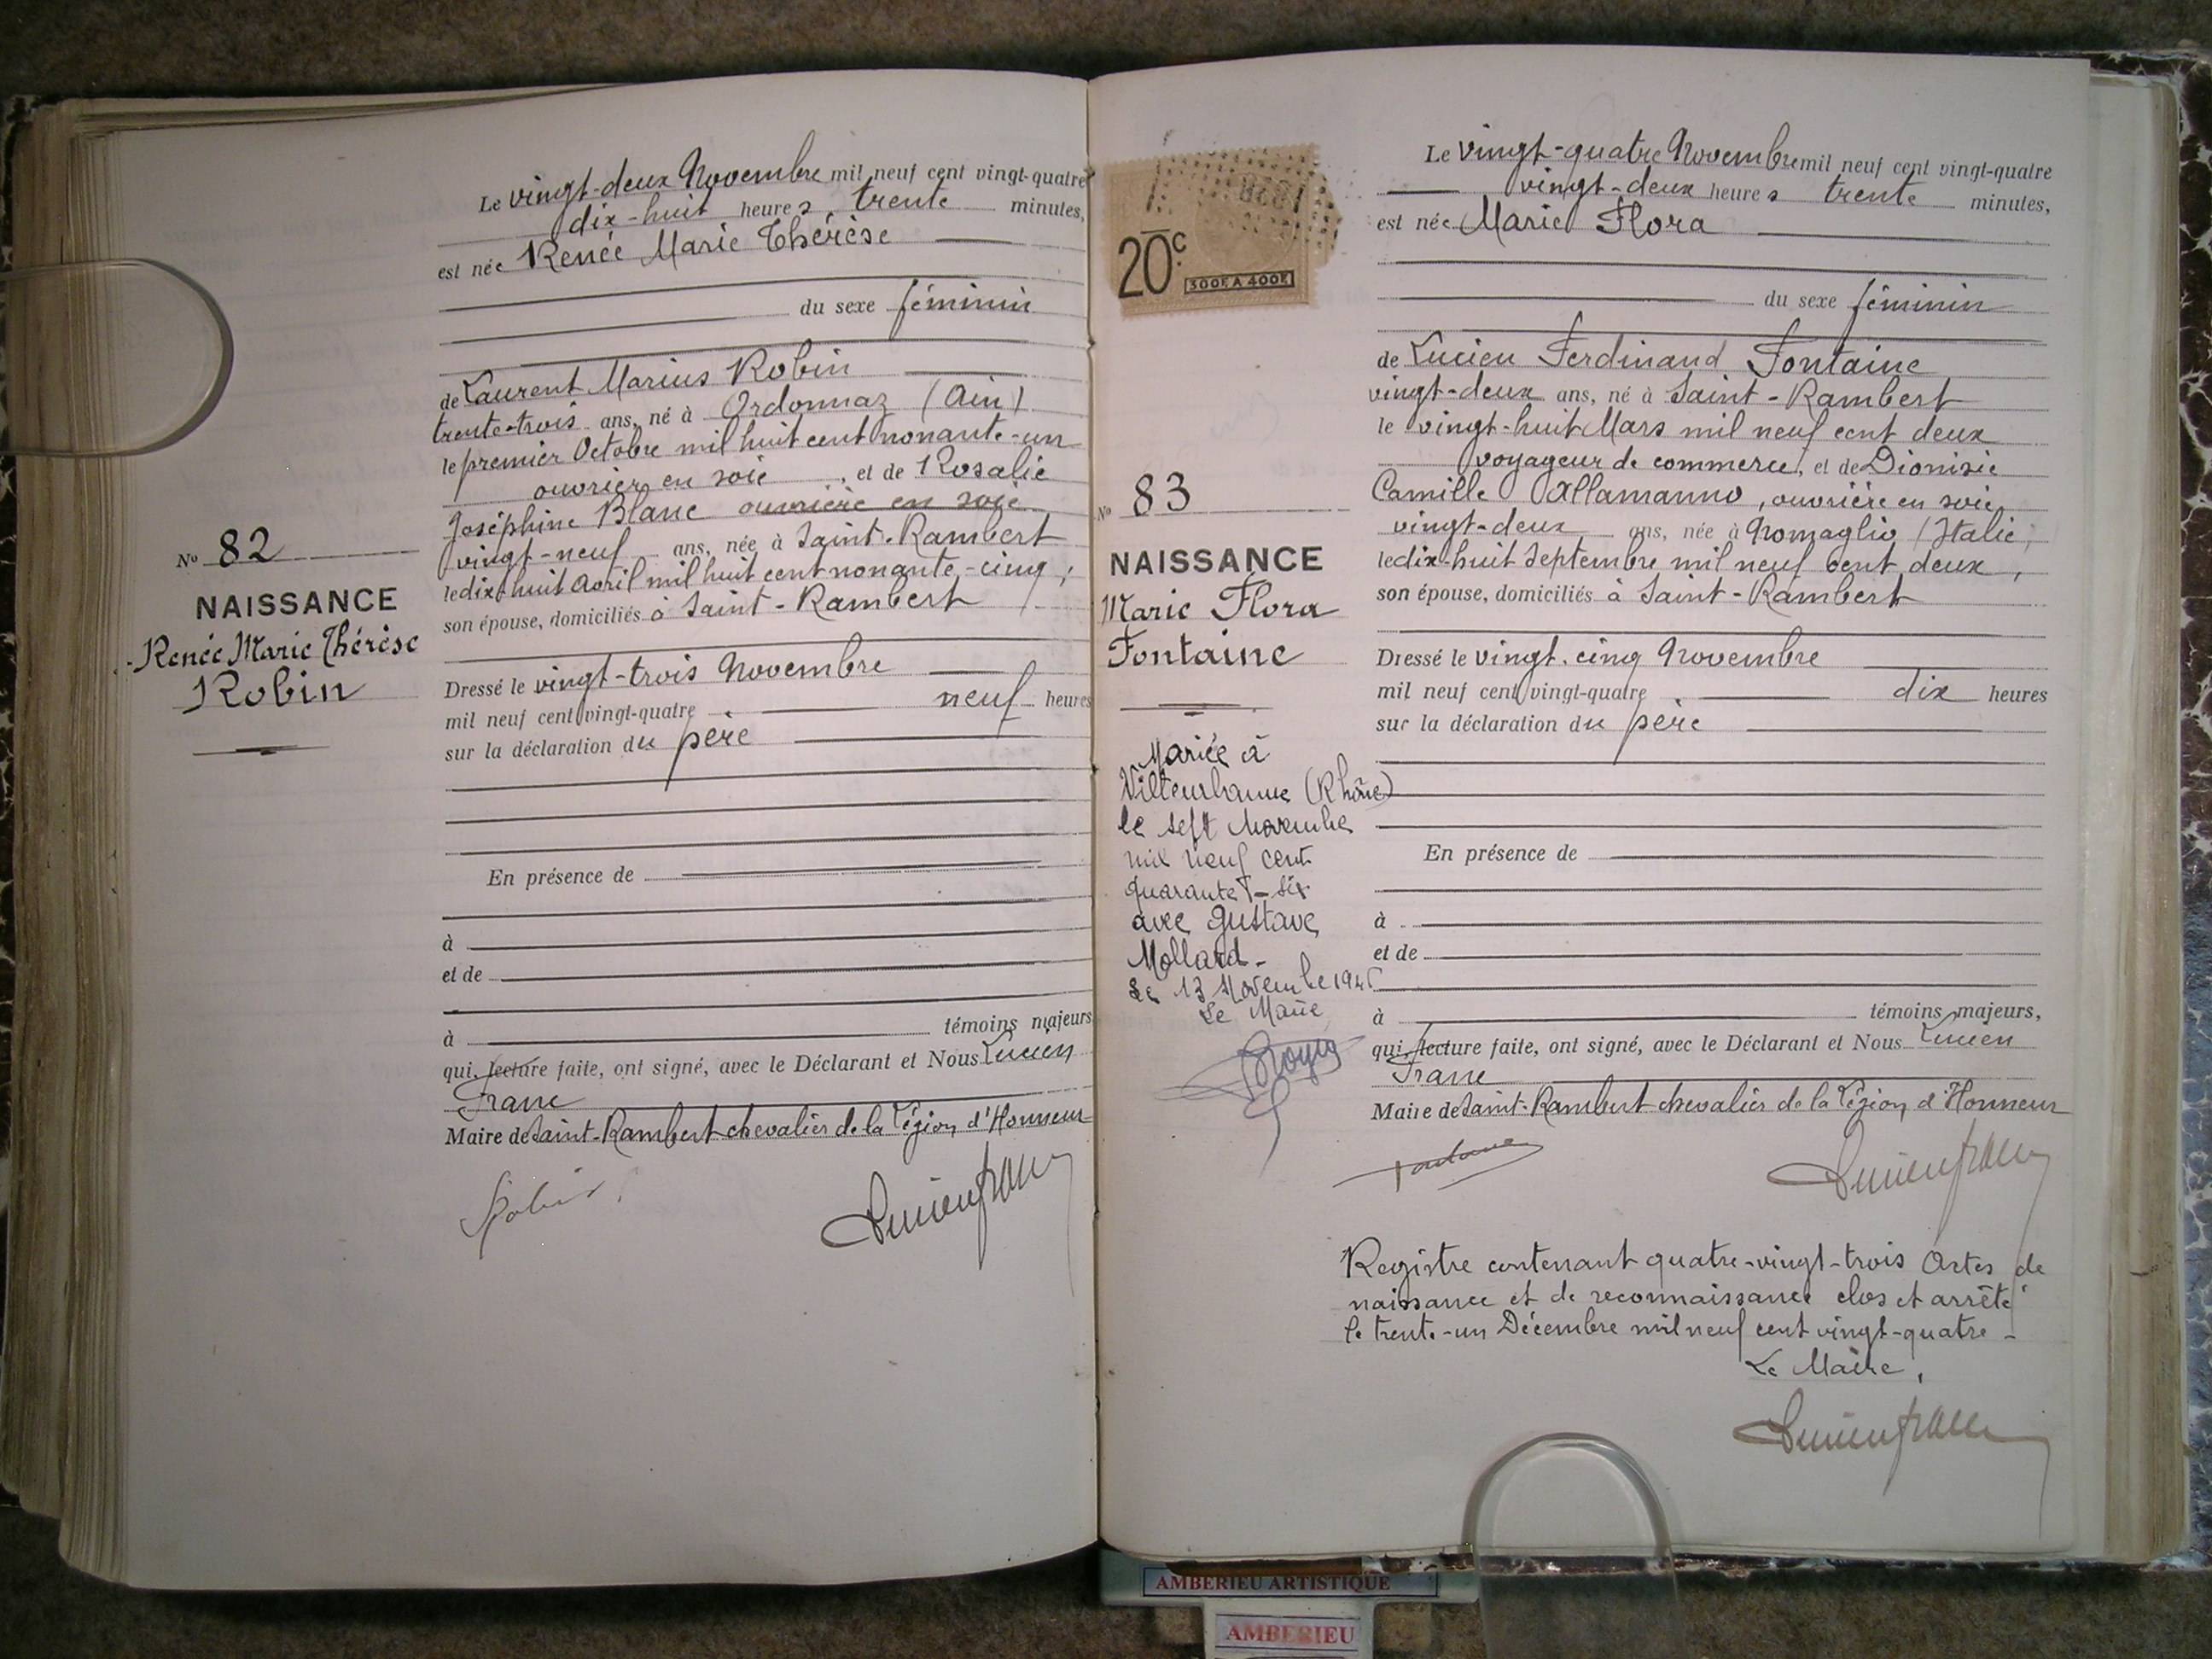 Le vingt-deux Novembre mil neuf cent vingt-quatre
dix-huit heures trente minutes,
est née Renée Marie Thérèse
du sexe féminin
de Laurent Marius Robin
trente-trois ans, né à Ordonnaz (Ain)
le premier Octobre mil huit cent nonante-un
ouvrier en soie, et de Rosalie
Joséphine Blanc ouvrière en soie
vingt-neuf ans, née à Saint-Rambert
le dix-huit Avril mil huit cent nonante-cinq;
son épouse, domiciliés à Saint-Rambert
No 82
NAISSANCE
Renée Marie Thérèse
Robin
Dressé le vingt-trois Novembre
mil neuf cent vingt-quatre neuf heures
sur la déclaration du père
En présence de
à
et de
à témoins majeurs
qui, lecture faite, ont signé, avec le Déclarant et Nous Lucien
Franc
Maire de Saint-Rambert chevalier de la Légion d'Honneur
Robin
Lucien Franc
20c
300F A 400F
Le vingt-quatre Novembre mil neuf cent vingt-quatre
vingt-deux heures trente minutes,
est née Marie Flora
du sexe féminin
de Lucien Ferdinand Fontaine
vingt-deux ans, né à Saint-Rambert
le vingt-huit Mars mil neuf cent deux
voyageur de commerce, et de Dionisie
Camille Allamanno, ouvrière en soie
vingt-deux ans, née à Gromaglio (Italie;
le dix-huit Septembre mil neuf cent deux,
son épouse, domiciliés à Saint-Rambert
No 83
NAISSANCE
Marie Flora
Fontaine
Mariée à
Villeurbanne (Rhône)
le sept Novembre
mil neuf cent
quarante-six
avec Gustave
Mollard-
Le 13 Novembre 194
Le Maire
Dressé le vingt-cinq Novembre
mil neuf cent vingt-quatre dix heures
sur la déclaration du père
En présence de
à
et de
à témoins majeurs,
qui, lecture faite, ont signé, avec le Déclarant et Nous Lucien
Franc
Maire de Saint-Rambert chevalier de la Légion d'Honneur
Fontaine
Lucien Franc
Registre contenant quatre-vingt-trois Actes de
naissance et de reconnaissance clos et arrêté
le trente-un Décembre mil neuf cent vingt-quatre-
Le Maire,
Lucien Franc
AMBERIEU ARTISTIQUE
AMBERIEU